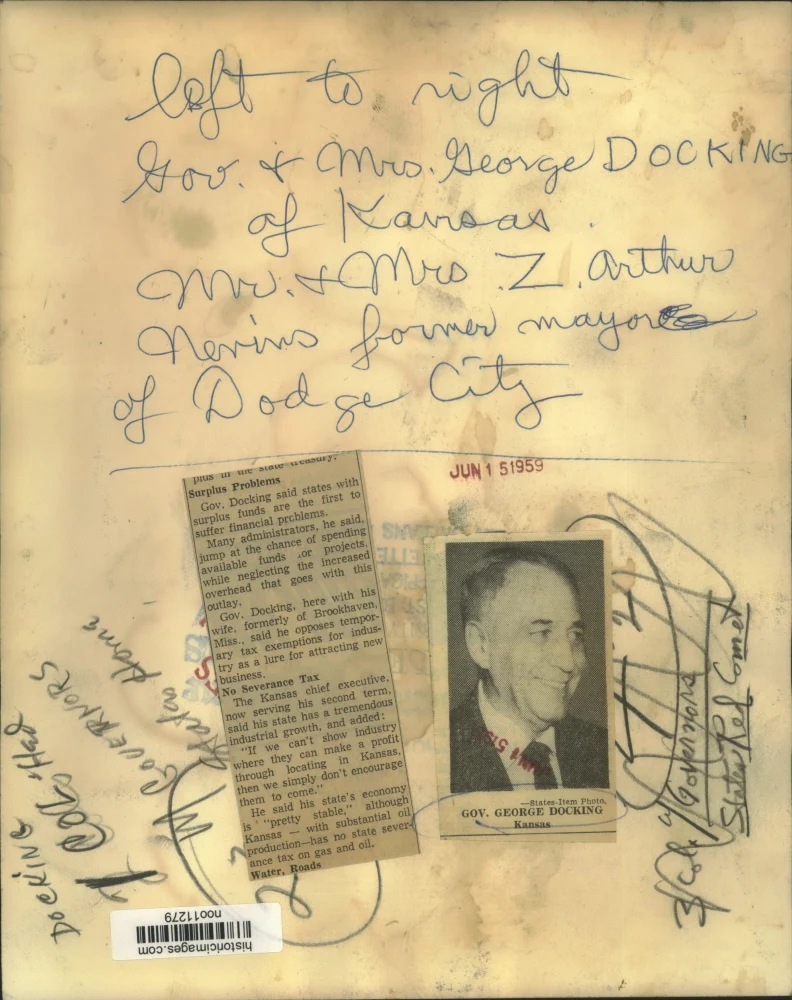 left to right
Gov. & Mrs. George DOCKING
of Kansas.
Mr. & Mrs. Z. Arthur
Nevins former mayor
of Dodge City
JUN 1 51959
plus in the state treasury.
Surplus Problems
Gov. Docking said states with
surplus funds are the first to
suffer financial problems.
Many administrators, he said,
jump at the chance of spending
available funds or projects,
while neglecting the increased
overhead that goes with this
outlay.
Gov. Docking, here with his
wife, formerly of Brookhaven,
Miss., said he opposes tempor-
ary tax exemptions for indus-
try as a lure for attracting new
business.
No Severance Tax
The Kansas chief executive,
now serving his second term,
said his state has a tremendous
industrial growth, and added:
"If we can't show industry
where they can make a profit
through locating in Kansas,
then we simply don't encourage
them to come."
He said his state's economy
is "pretty stable," although
Kansas — with substantial oil
production—has no state sever-
ance tax on gas and oil.
Water, Roads
—States-Item Photo.
GOV. GEORGE DOCKING
Kansas
DOCKING + Hed
GOVERNORS
States Home
3/Col. w/ Governors
States Red Comet
historicimages.com
noo11279